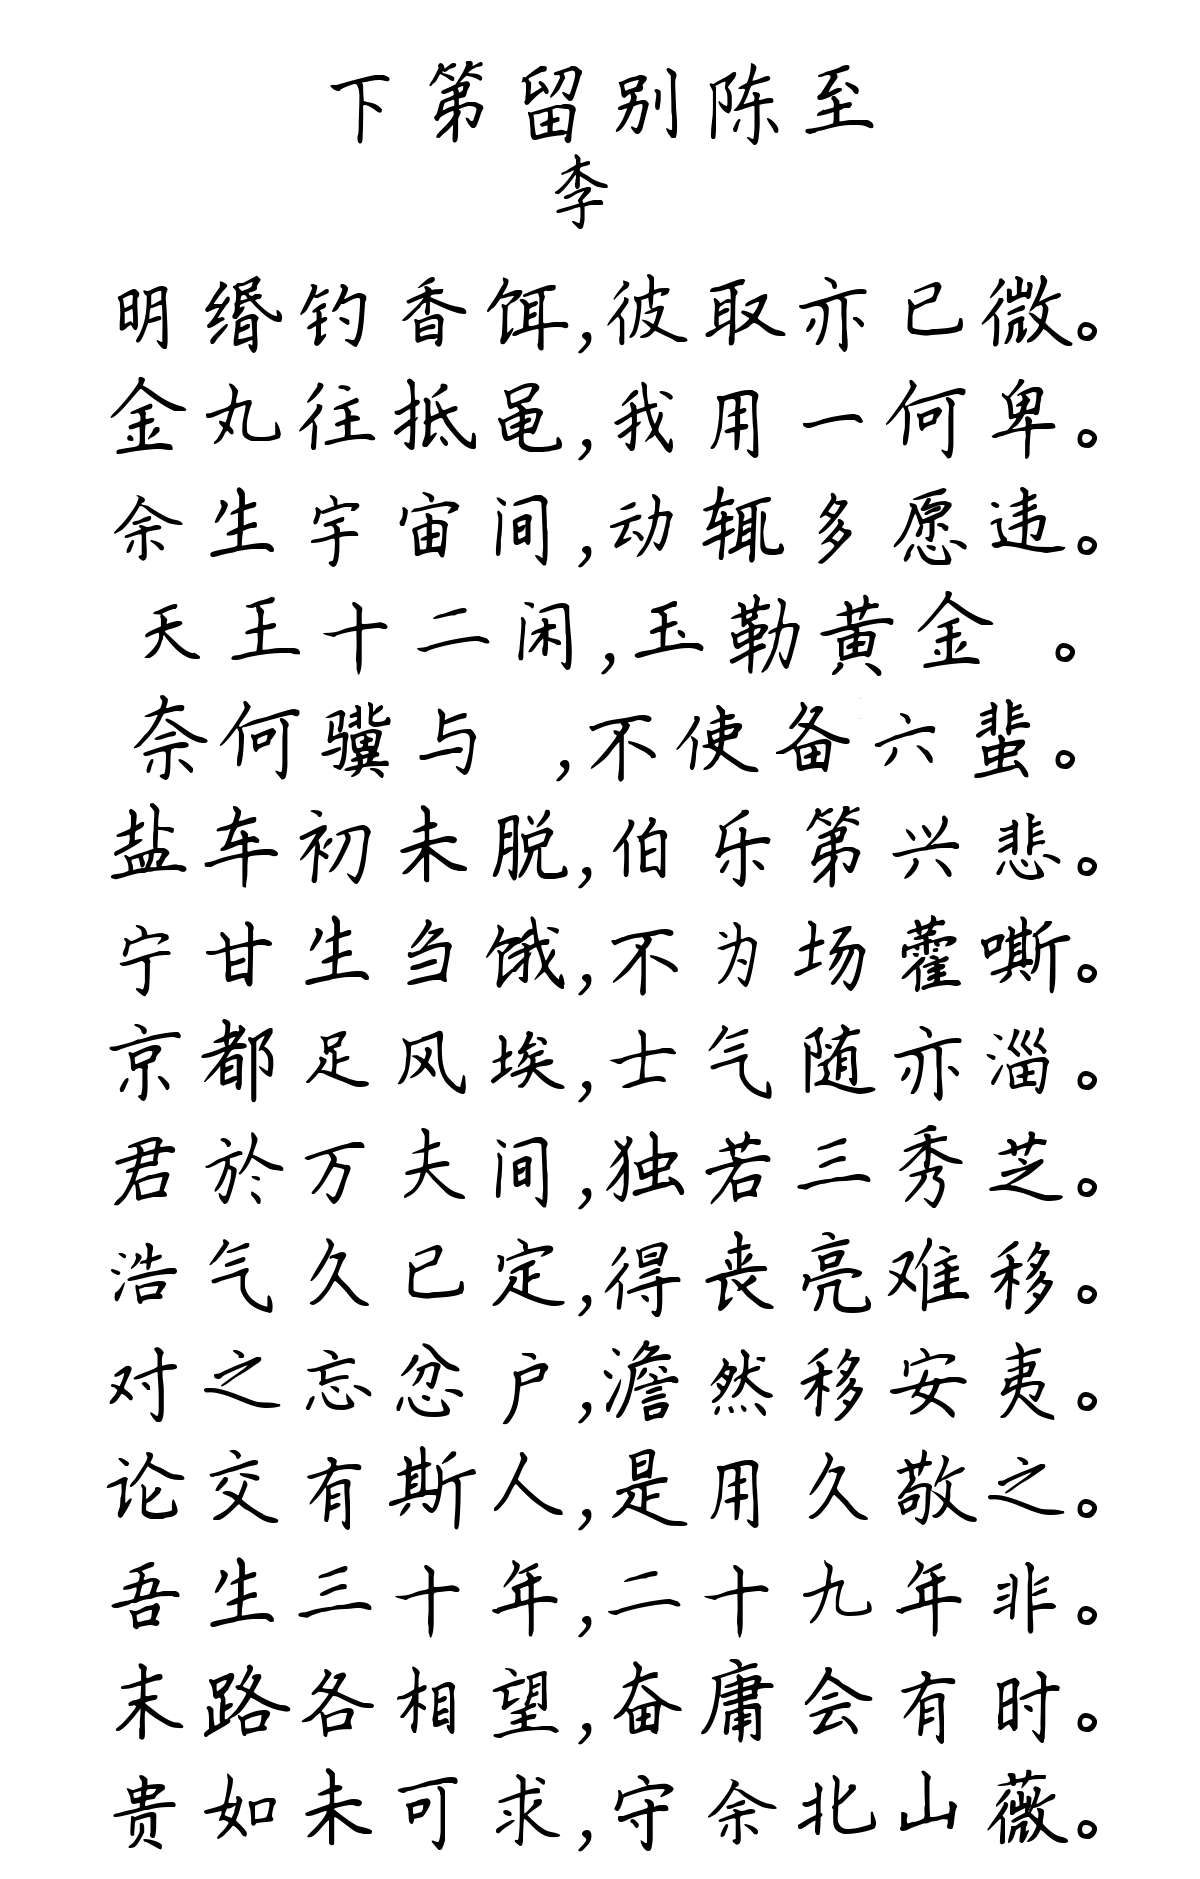 下第留别陈至
李
明缗钓香饵,彼取亦已微。
金丸往抵黾,我用一何卑。
余生宇宙间,动辄多愿违。
天王十二闲,玉勒黄金 。
奈何骥与 ,不使备六蜚。
盐车初未脱,伯乐第兴悲。
宁甘生刍饿,不为场藿嘶。
京都足风埃,士气随亦淄。
君於万夫间,独若三秀芝。
浩气久已定,得丧亮难移。
对之忘忿户,澹然移安夷。
论交有斯人,是用久敬之。
吾生三十年,二十九年非。
末路各相望,奋庸会有时。
贵如未可求,守余北山薇。